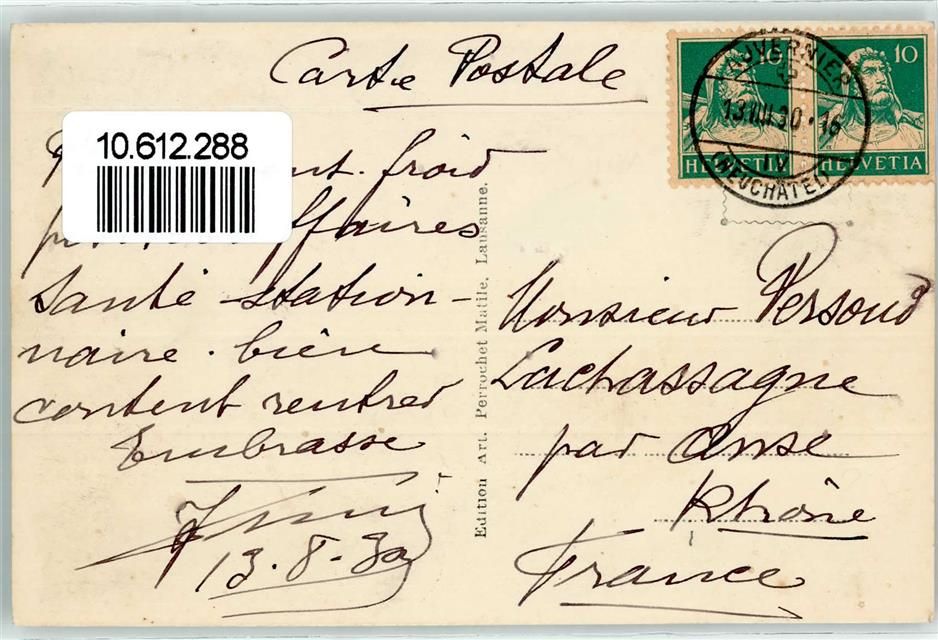 Carte Postale
10.612.288
froid
ffaires
Santé station-
naire. bien
content rentrer
Embrasse
13-8-30
Edition Art. Perrochet Matile, Lausanne.
10 10
HELVETIA HELVETIA
AUVERNIER
13.VIII.30.-16
(NEUCHÂTEL)
Monsieur Persoud
Lachassagne
par Anse
Rhône
France